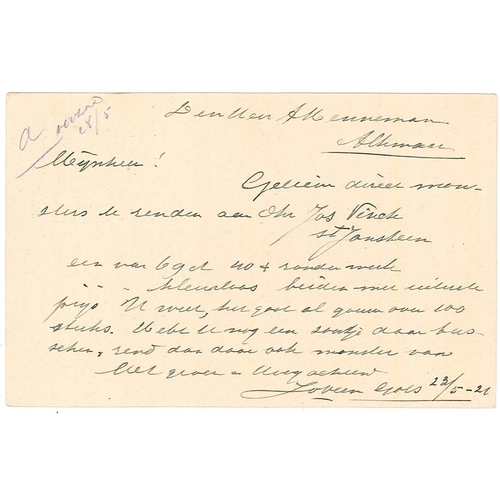 Den Heer A Menneman
Alkmaar
Mijnheer!
Gelieve direct mon-
sters te zenden aan Dhr Jos Vinck
St Jansteen
een van 6 get 40+ zonder merk
kleurloos beiden met uiterste
prijs U weet, het gaat al gauw over 100
stuks. Hebt U nog een soortje daar tus-
schen, zend dan daar ook monster van
Met groet en Hoogachtend
22/5-21
28/5